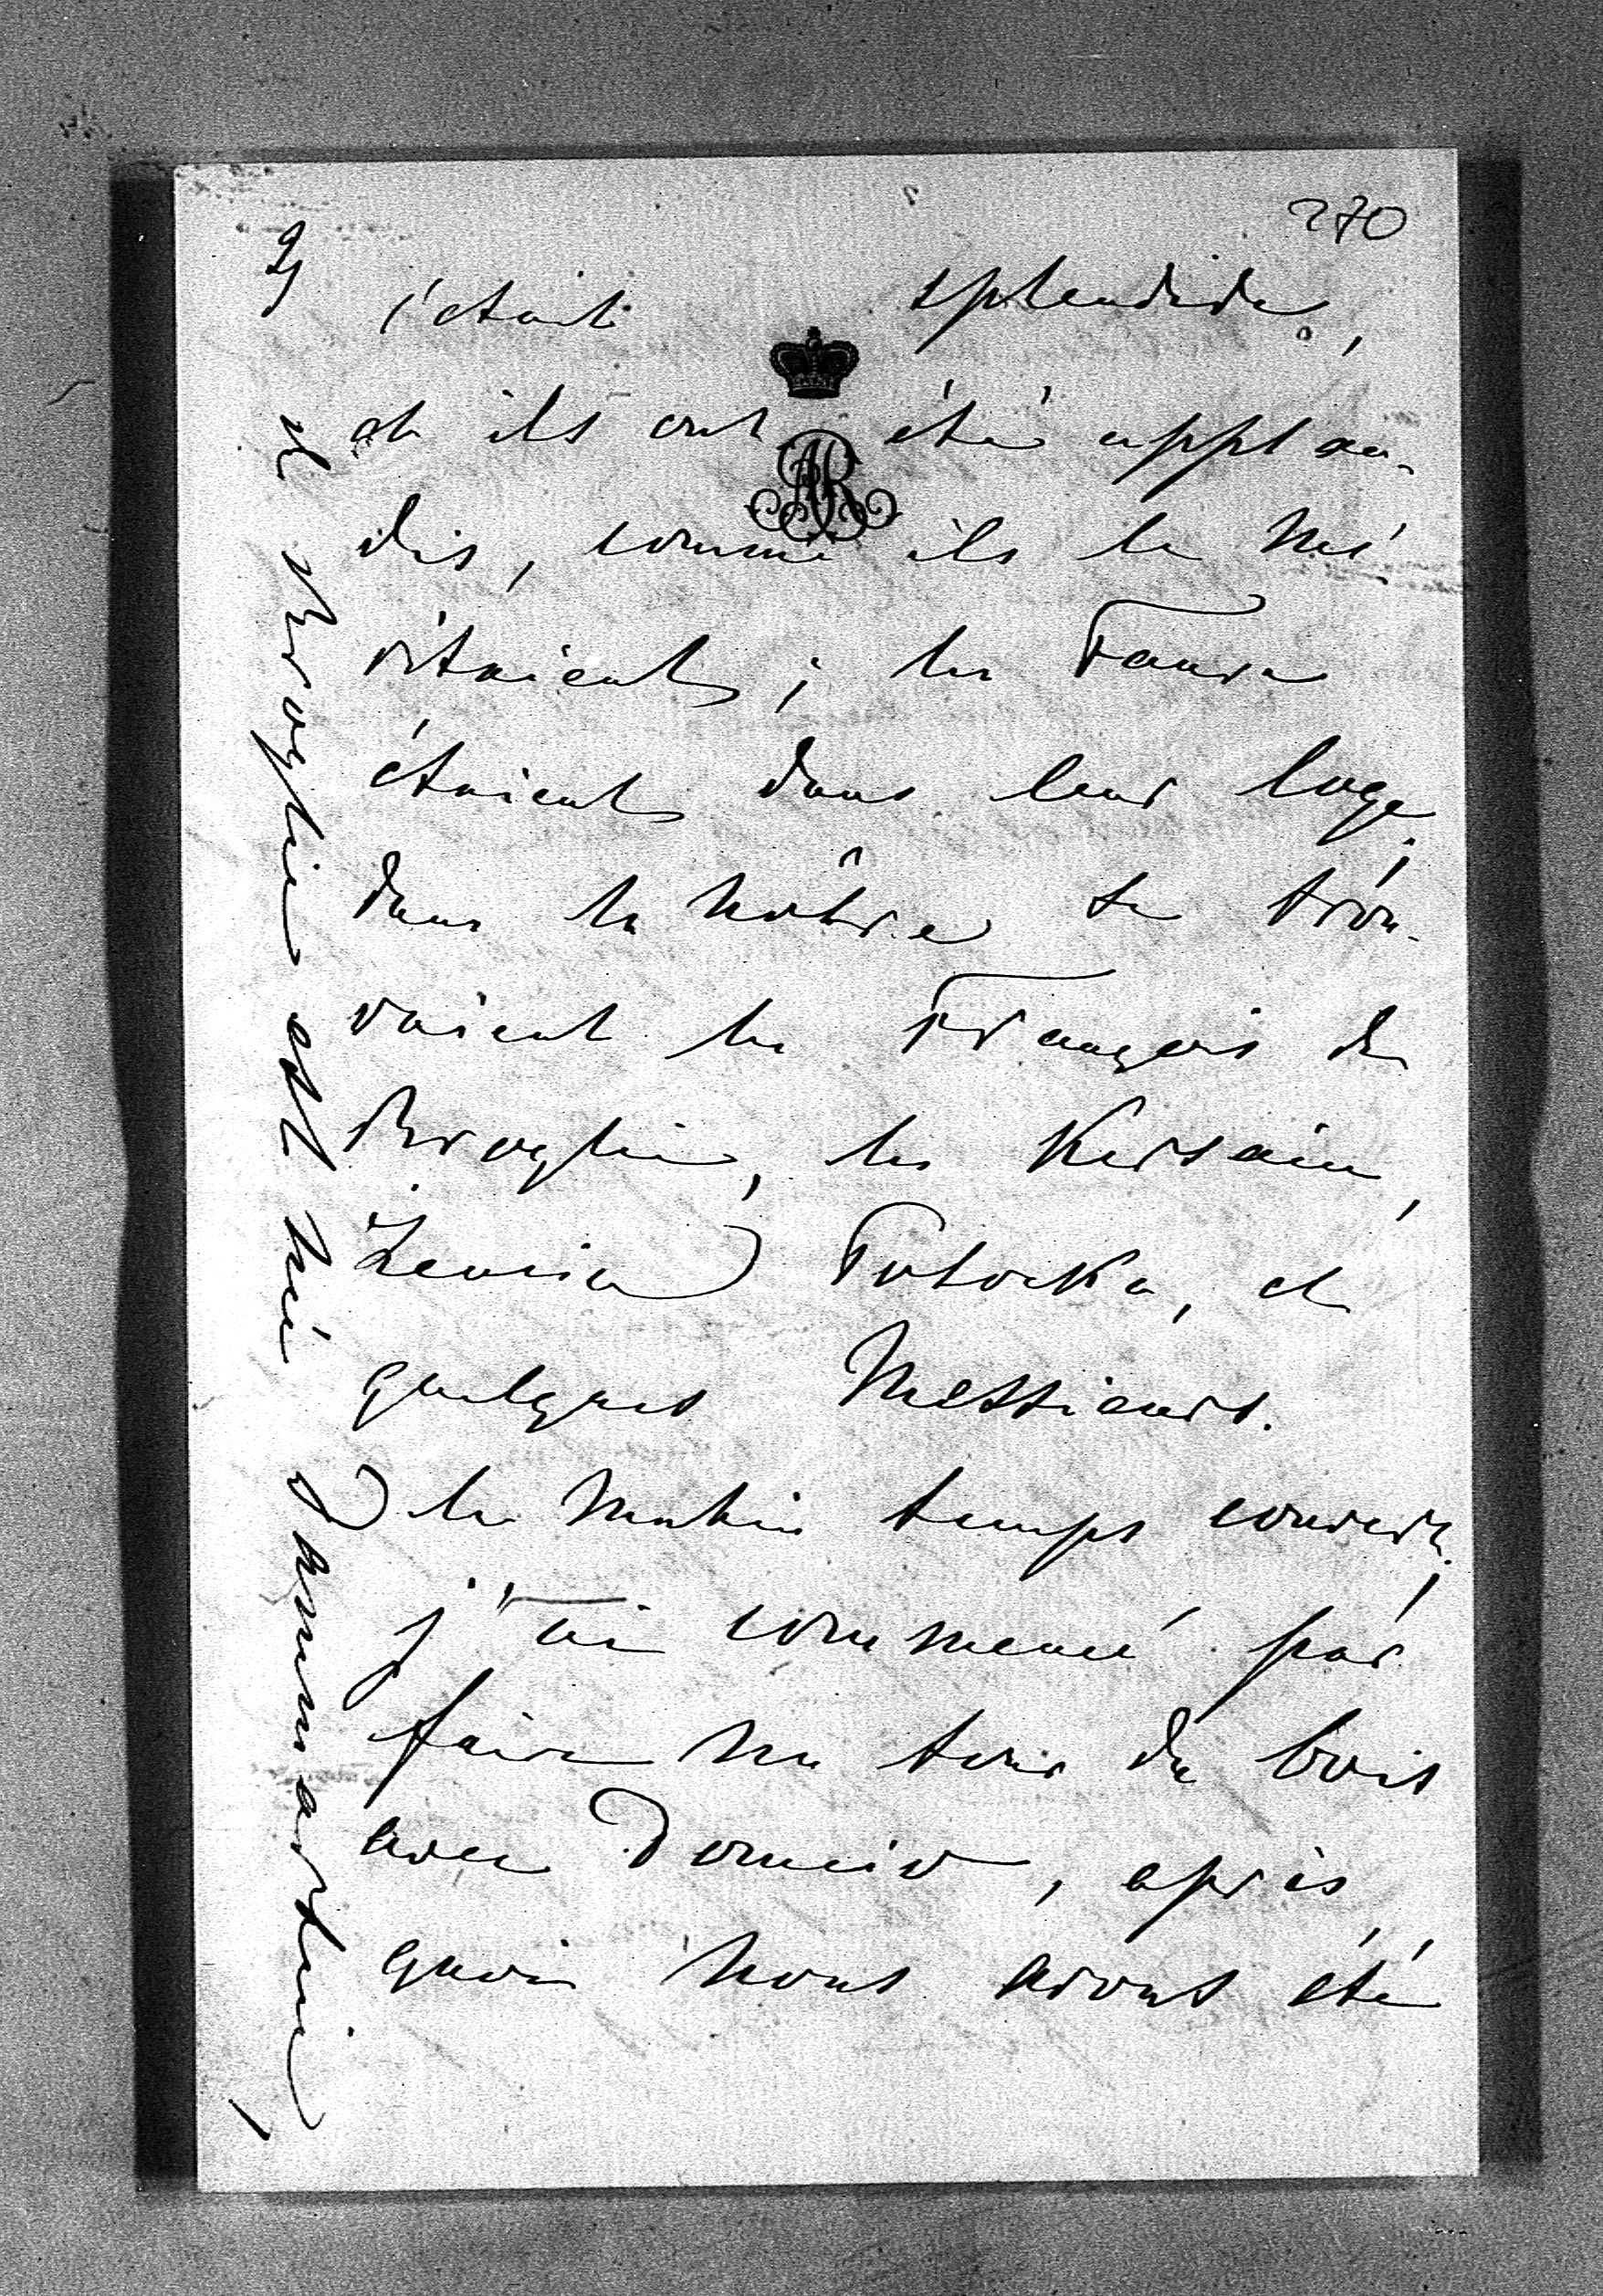 270
2)
c'était splendide,
et ils ont été applau-
dis, comme ils le mé-
ritaient; les Faure
étaient dans leur loge;
dans la nôtre se trou-
vaient les François de
Broglie, les Kersaint,
Potocka, et
quelques Messieurs.
le matin temps couvert;
j'ai commencé par
faire un tour du bois
avec , après
quoi nous avons été
de Broglie est née Armaillé,